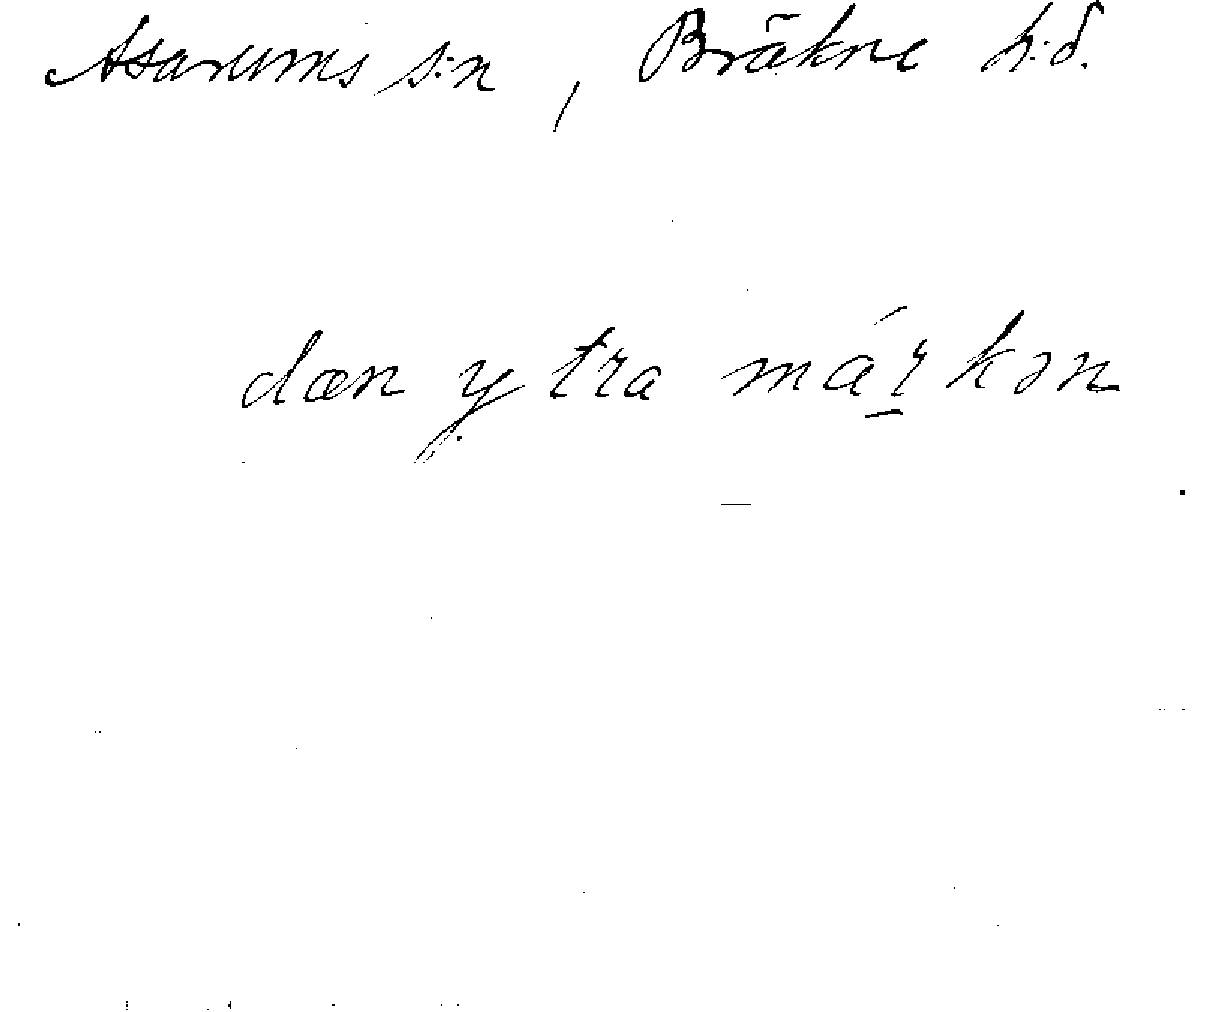 Asarums s:n, Bräkne h:d.
dæn ytra má̱rkən